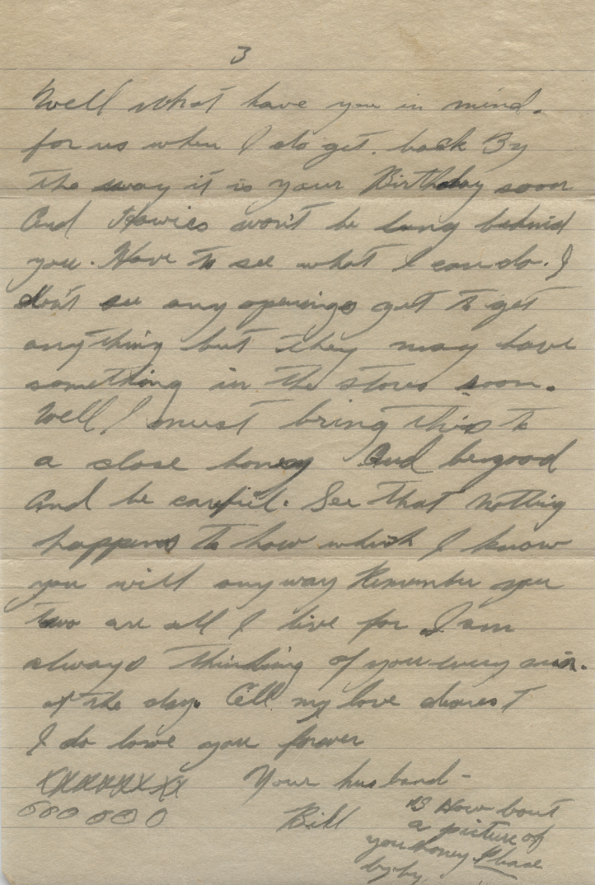 3
Well what have you in mind.
for us when I do get. back By
the way it is your Birthday soon
And Howies won't be long behind
you. Have to see what I can do. I
don't see any openings yet to get
anything but they may have
something in the stores soon.
Well I must bring this to
a close honey And be good
And be careful. See that nothing
happens to how which I know
you will anyway Remember you
two are all I live for I am
always thinking of you every min.
of the day. All my love dearest
I do love you forever
XXXXXXXX Your husband -
OOOOOO Bill
PS How bout
a picture of
you honey Please
by by